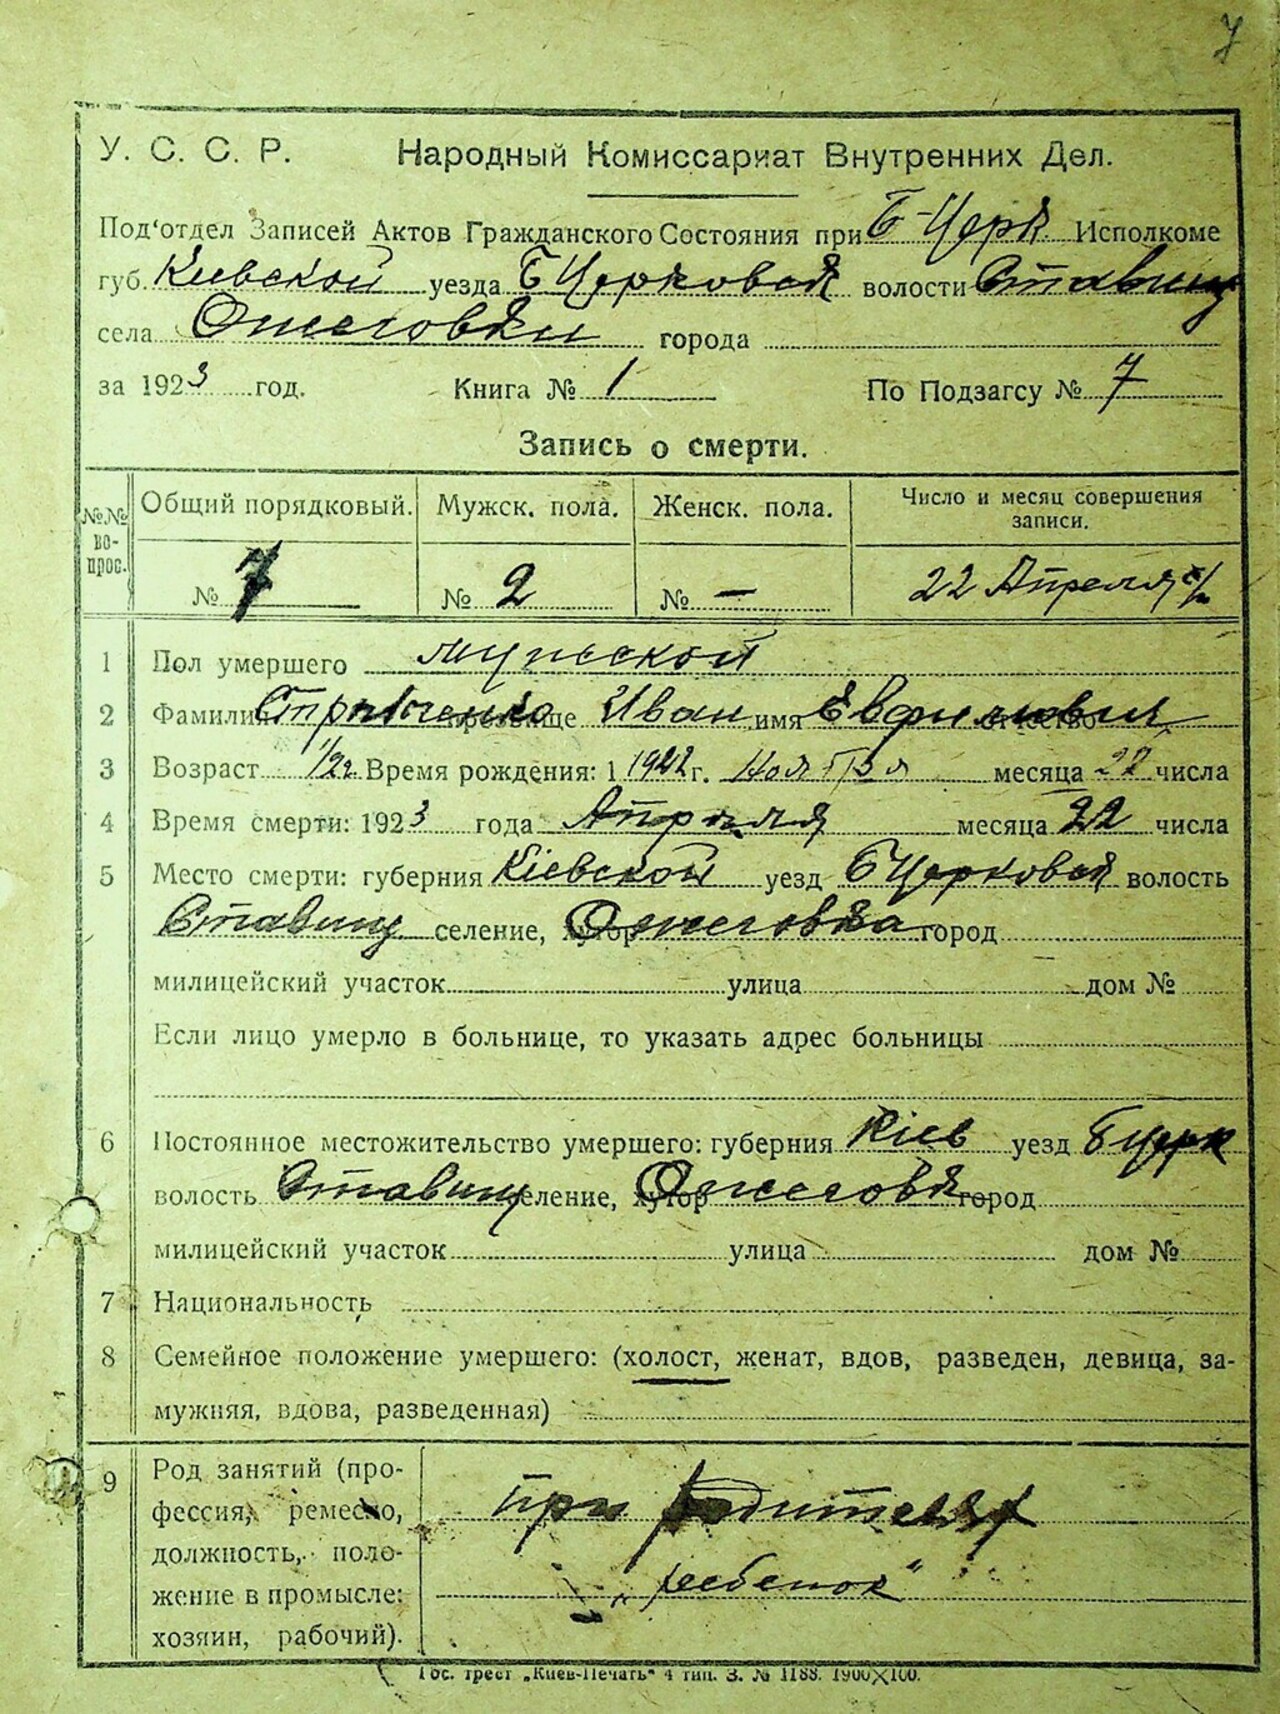 7
У. С. С. Р. Народный Комиссариат Внутренних Дел.
Под'отдел Записей Актов Гражданского Состояния при Б-Церк Исполкоме
губ. Киевской уезда БЦерковск волости Ставищ
села Ожеговки города
за 1923 год. Книга № 1 По Подзагсу № 7
Запись о смерти.
№№ во-прос. Общий порядковый. Мужск. пола. Женск. пола. Число и месяц совершения записи.
№ 7 № 2 № — 22 Апреля с/г
1 Пол умершего мужской
2 Фамилия прозвище Иван имя отчество
3 Возраст 1/2г. Время рождения: 1 1922 г. Ноября месяца 22 числа
4 Время смерти: 1923 года Апреля месяца 22 числа
5 Место смерти: губерния Кіевской уезд БЦерковск волость
Ставищ селение, хутор Ожеговка город
милицейский участок улица дом №
Если лицо умерло в больнице, то указать адрес больницы
6 Постоянное местожительство умершего: губерния Кіев уезд БЦерк
волость Ставищ селение, хутор Ожеговк город
милицейский участок улица дом №
7 Национальность
8 Семейное положение умершего: (холост, женат, вдов, разведен, девица, за-
мужняя, вдова, разведенная)
9 Род занятий (про-
фессия, ремесло,
должность, поло-
жение в промысле:
хозяин, рабочий).
при родителях
„ребенок"
Гос. трест „Киев-Печать" 4 тип. З. № 1188. 1900×100.